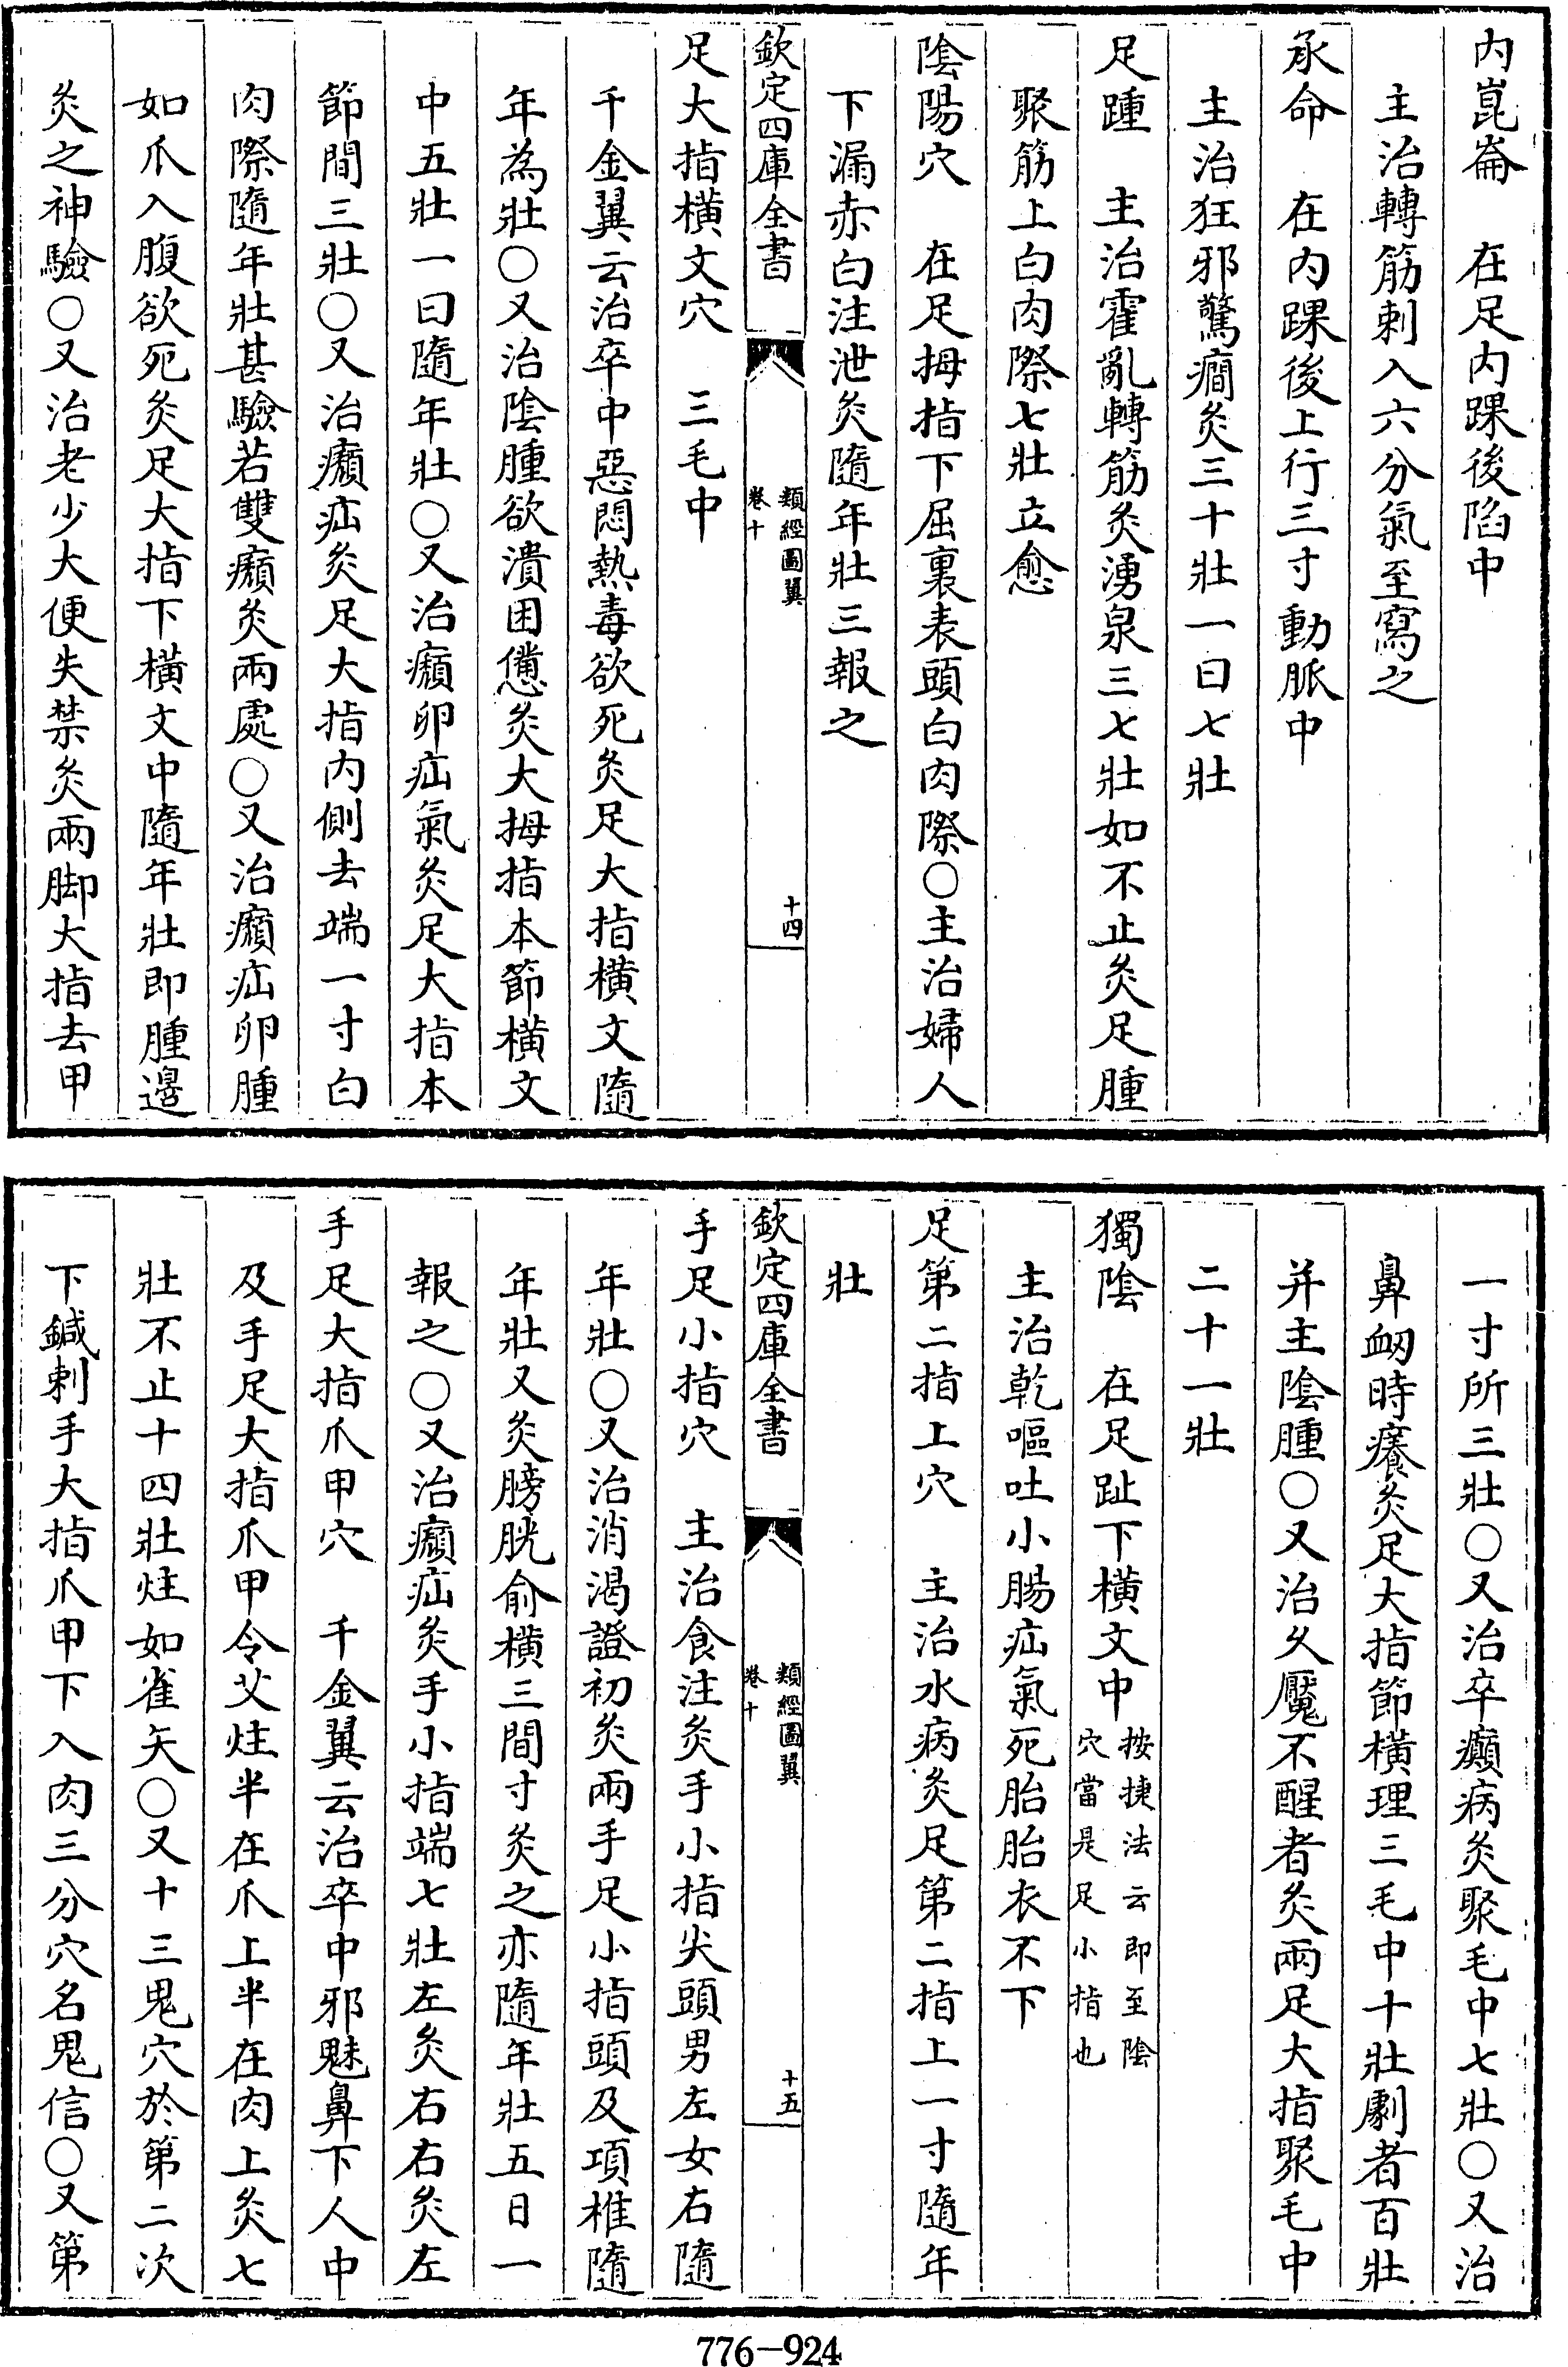 內崑崙　在足內踝後陷中
主治轉筋刺入六分氣至寫之
承命　在內踝後上行三寸動脈中
主治狂邪驚癇灸三十壯一曰七壯
足踵　主治霍亂轉筋灸湧泉三七壯如不止灸足腫
聚筋上白肉際七壯立愈
陰陽穴　在足拇指下屈裏表頭白肉際○主治婦人
下漏赤白注泄灸隨年壯三報之
欽定四庫全書
類經圖翼
卷十
十四
足大指橫文穴　三毛中
千金翼云治卒中惡悶熱毒欲死灸足大指橫文隨
年為壯○又治陰腫欲潰困憊灸大拇指本節橫文
中五壯一曰隨年壯○又治㿗卵疝氣灸足大指本
節間三壯○又治㿗疝灸足大指內側去端一寸白
肉際隨年壯甚驗若雙㿗灸兩處○又治㿗疝卵腫
如爪入腹欲死灸足大指下橫文中隨年壯即腫邊
灸之神驗○又治老少大便失禁灸兩脚大指去甲
一寸所三壯○又治卒癲病灸聚毛中七壯○又治
鼻衂時癢灸足大指節橫理三毛中十壯劇者百壯
并主陰腫○又治久魘不醒者灸兩足大指聚毛中
二十一壯
獨陰　在足趾下橫文中按捷法云即至陰穴當是足小指也
主治乾嘔吐小腸疝氣死胎胎衣不下
足第二指上穴　主治水病灸足第二指上一寸隨年
壯
欽定四庫全書
類經圖翼
卷十
十五
手足小指穴　主治食注灸手小指尖頭男左女右隨
年壯○又治消渴證初灸兩手足小指頭及項椎隨
年壯又灸膀胱俞橫三間寸灸之亦隨年壯五日一
報之○又治㿗疝灸手小指端七壯左灸右右灸左
手足大指爪甲穴　千金翼云治卒中邪魅鼻下人中
及手足大指爪甲令艾炷半在爪上半在肉上灸七
壯不止十四壯炷如雀矢○又十三鬼穴於第二次
下鍼刺手大指爪甲下入肉三分穴名鬼信○又第
776-924